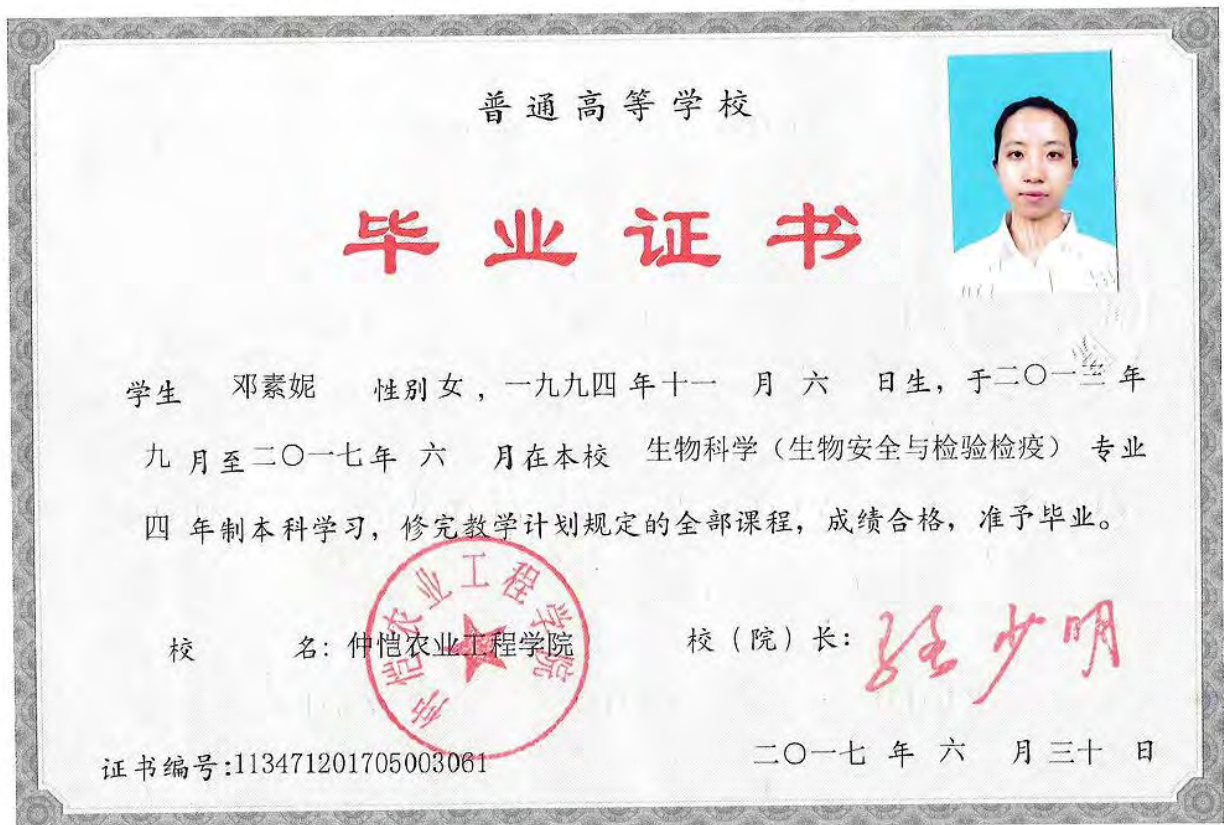 普通高等学校
毕业证书
学生 邓素妮 性别 女，一九九四 年 十一 月 六 日生，于 二〇一三 年
九 月至 二〇一七 年 六 月在本校 生物科学（生物安全与检验检疫） 专业
四 年制本科学习，修完教学计划规定的全部课程，成绩合格，准予毕业。
仲恺农业工程学院
校 名：仲恺农业工程学院 校（院）长：
少明
证书编号:113471201705003061 二〇一七 年 六 月 三十 日